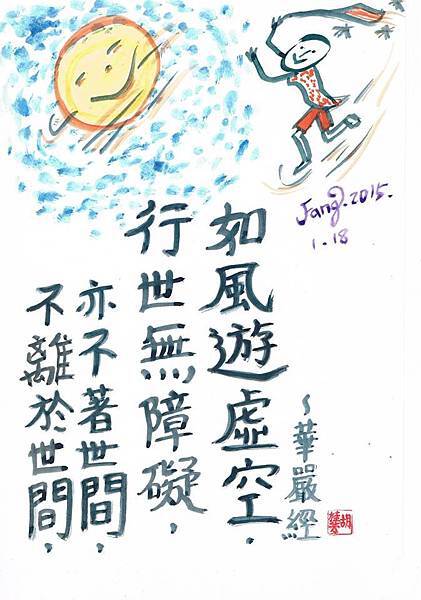 Jang.2015.
1.18
如風遊虛空，
行世無障礙，
亦不著世間，
不離於世間，
~華嚴經
胡